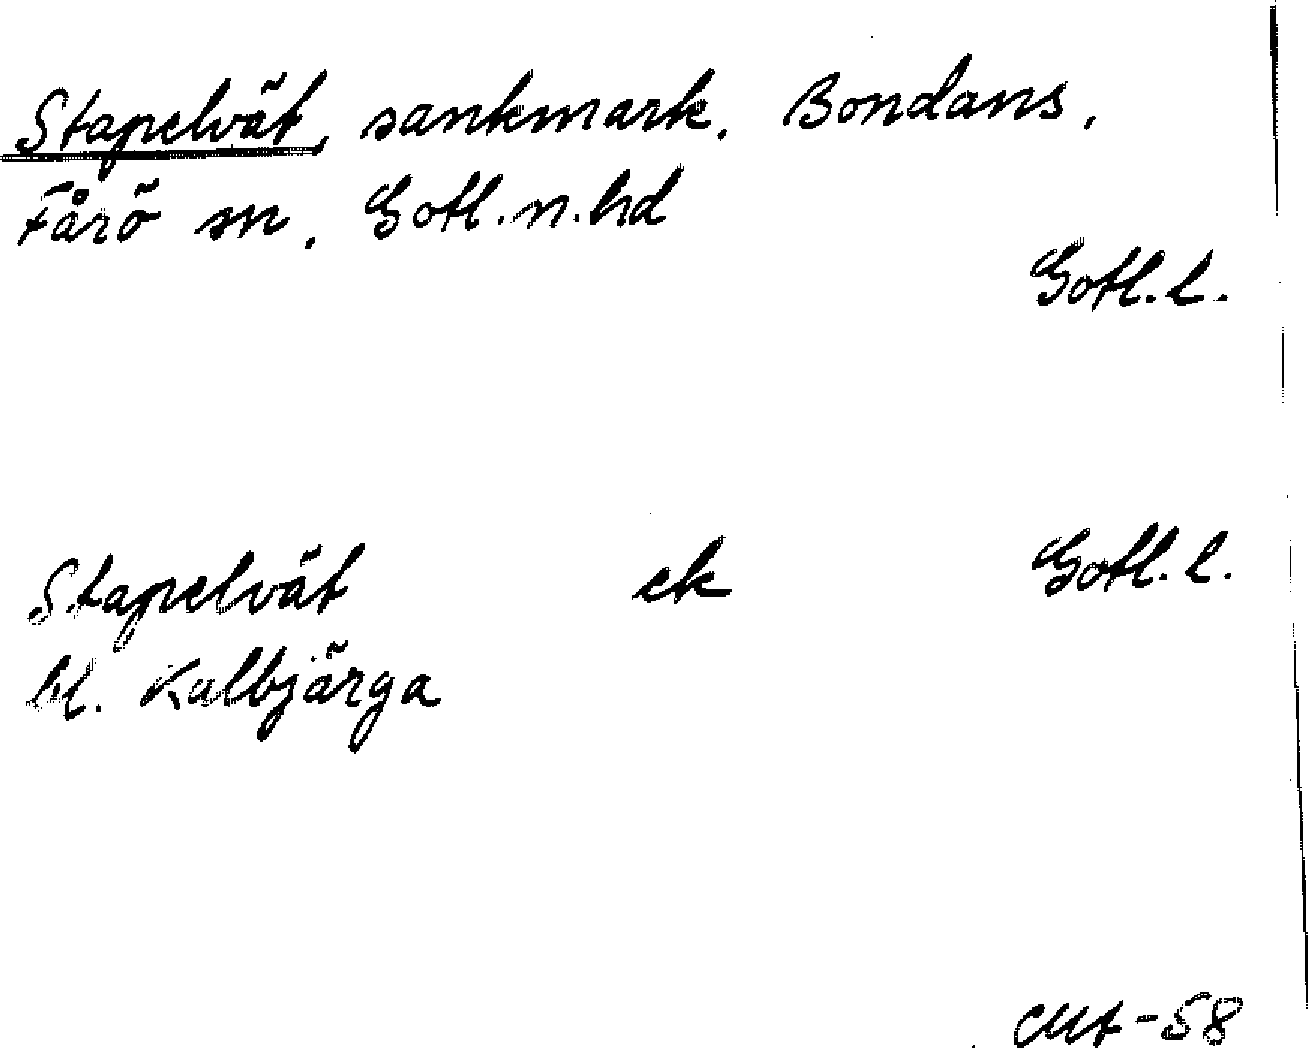 Stapelvät, sankmark. Bondans,
Fårö sn. Gotl.n.hd
Gotl.l.
Stapelvät ek Gotl.l.
bl. Kalbjärga
-58